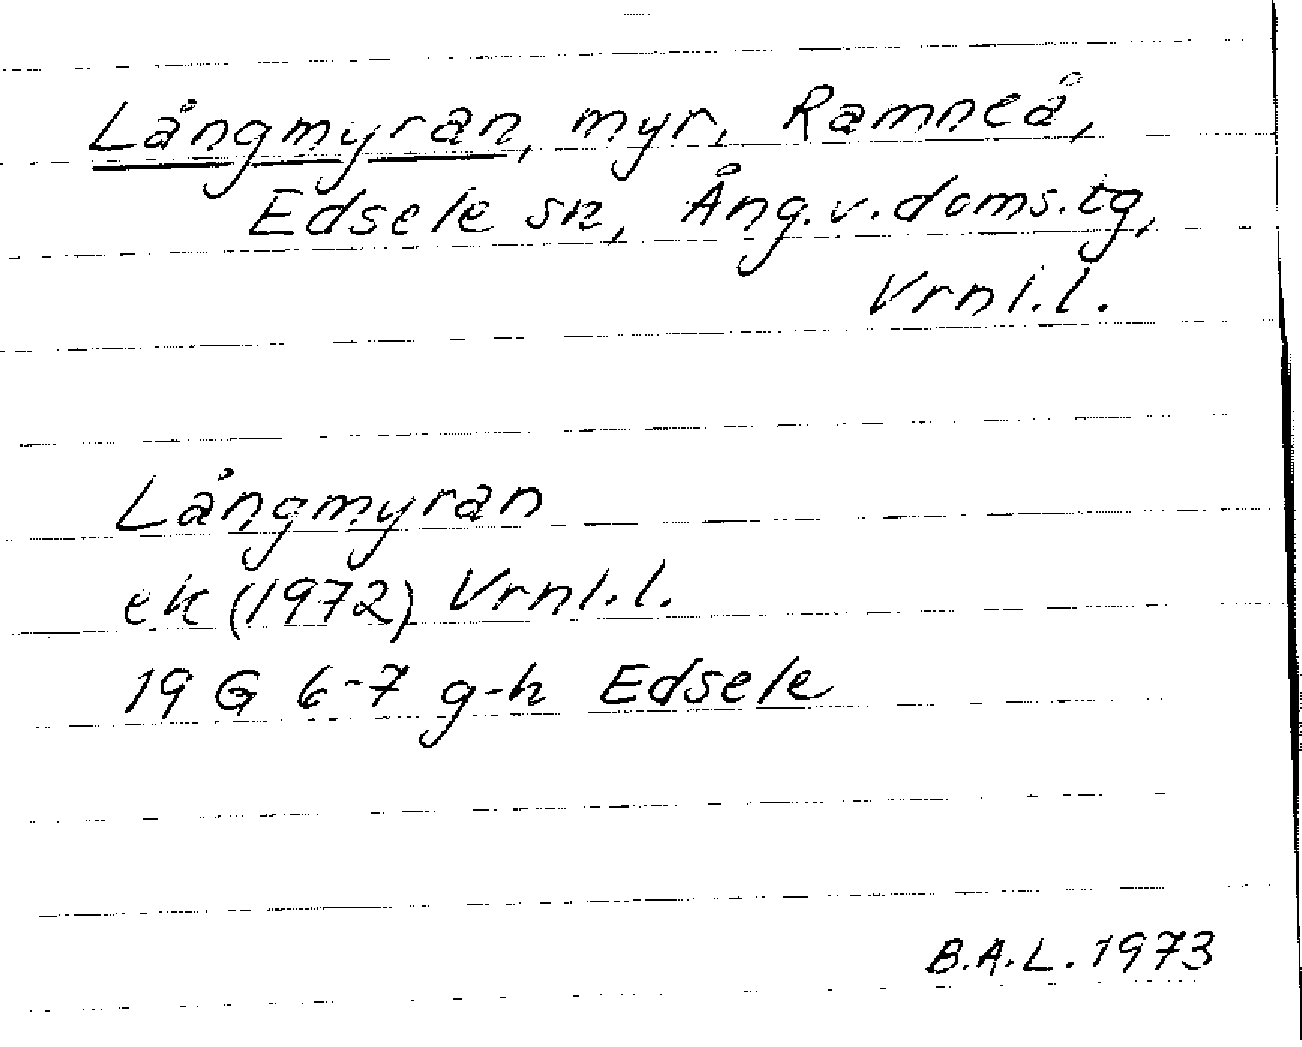 Långmyran, myr, Ramneå,
Edsele sn, Ång.v.doms.tg,
Vrnl.l.
Långmyran
ek (1972) Vrnl.l.
19 G 6-7 g-h Edsele
B.A.L. 1973